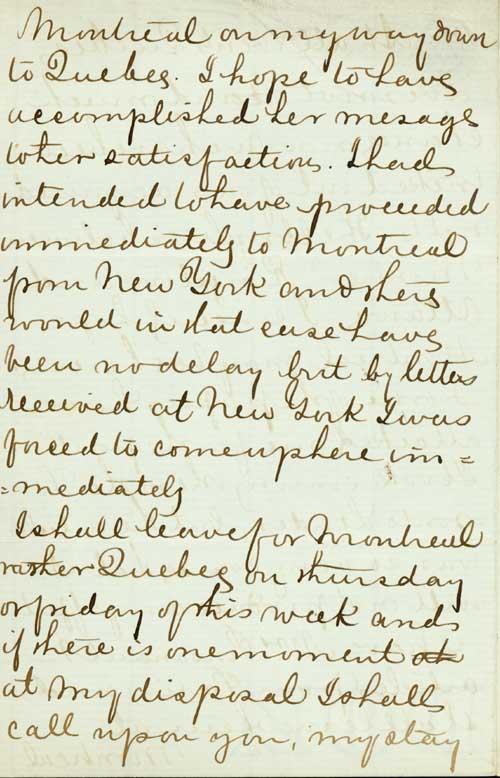 Montreal on my way down
to Quebec. I hope to have
accomplished her mesage
to her satisfaction. I had
intended to have proceeded
immediately to Montreal
from New York and there
would in that case have
been no delay but by letters
received at New York I was
forced to come up here im=
=mediately
I shall leave for Montreal
rather Quebec on thursday
or friday of this week and
if there is one moment
at my disposal I shall
call upon you, my stay